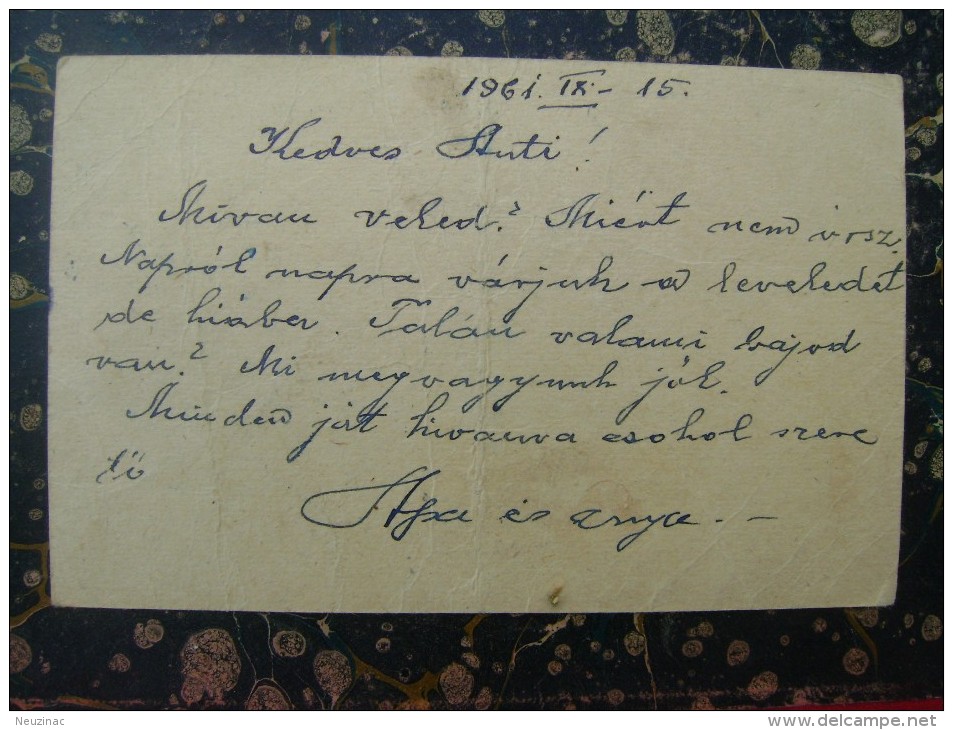 1961. IX. - 15.
Kedves Anti!
Mivan veled? Miért nem irsz.
Napról napra várjuk a leveledet
de hiába. Talán valami bajod
van? Mi megvagyunk jól.
Minden jót kivánva csokol szere
tő
Apa és anya. -
Neuzinac
www.delcampe.net